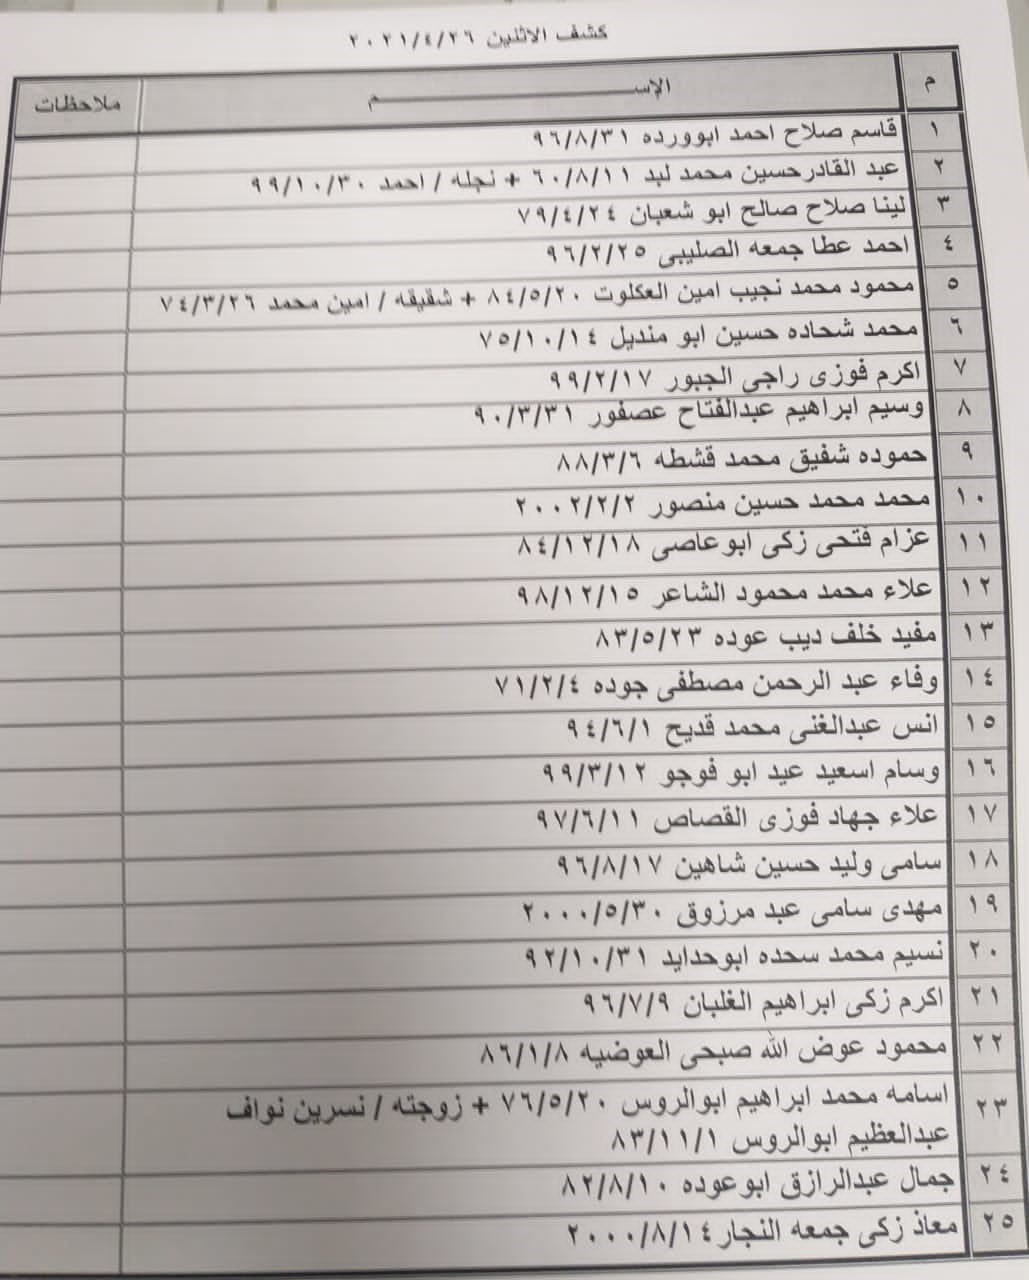 كشف الاثنين ٢٠٢١/٤/٢٦
م الإســــــــم ملاحظات
١ قاسم صلاح احمد ابوورده ٩٦/٨/٣١
٢ عبد القادرحسين محمد لبد ٦٠/٨/١١ + نجله / احمد ٩٩/١٠/٣٠
٣ لينا صلاح صالح ابو شعبان ٧٩/٤/٢٤
٤ احمد عطا جمعه الصليبى ٩٦/٢/٢٥
٥ محمود محمد نجيب امين العكلوت ٨٤/٥/٢٠ + شقيقه / امين محمد ٧٤/٣/٢٦
٦ محمد شحاده حسين ابو منديل ٧٥/١٠/١٤
٧ اكرم فوزى راجي الجبور ٩٩/٢/١٧
٨ وسيم ابراهيم عبدالفتاح عصفور ٩٠/٣/٣١
٩ حموده شفيق محمد قشطه ٨٨/٣/٦
١٠ محمد محمد حسين منصور ٢٠٠٢/٢/٢
١١ عزام فتحى زكى ابوعاصى ٨٤/١٢/١٨
١٢ علاء محمد محمود الشاعر ٩٨/١٢/١٥
١٣ مفيد خلف ديب عوده ٨٣/٥/٢٣
١٤ وفاء عبد الرحمن مصطفى جوده ٧١/٢/٤
١٥ انس عبدالغنى محمد قديح ٩٤/٦/١
١٦ وسام اسعيد عيد ابو فوجو ٩٩/٣/١٢
١٧ علاء جهاد فوزى القصاص ٩٧/٦/١١
١٨ سامى وليد حسين شاهين ٩٦/٨/١٧
١٩ مهدى سامى عبد مرزوق ٢٠٠٠/٥/٣٠
٢٠ نسيم محمد سحده ابوحدايد ٩٢/١٠/٣١
٢١ اكرم زكى ابراهيم الغلبان ٩٦/٧/٩
٢٢ محمود عوض الله صبحى العوضيه ٨٦/١/٨
٢٣ اسامه محمد ابراهيم ابوالروس ٧٦/٥/٢٠ + زوجته / نسرين نواف
عبدالعظيم ابوالروس ٨٣/١١/١
٢٤ جمال عبدالرازق ابوعوده ٨٢/٨/١٠
٢٥ معاذ زكى جمعه النجار ٢٠٠٠/٨/١٤